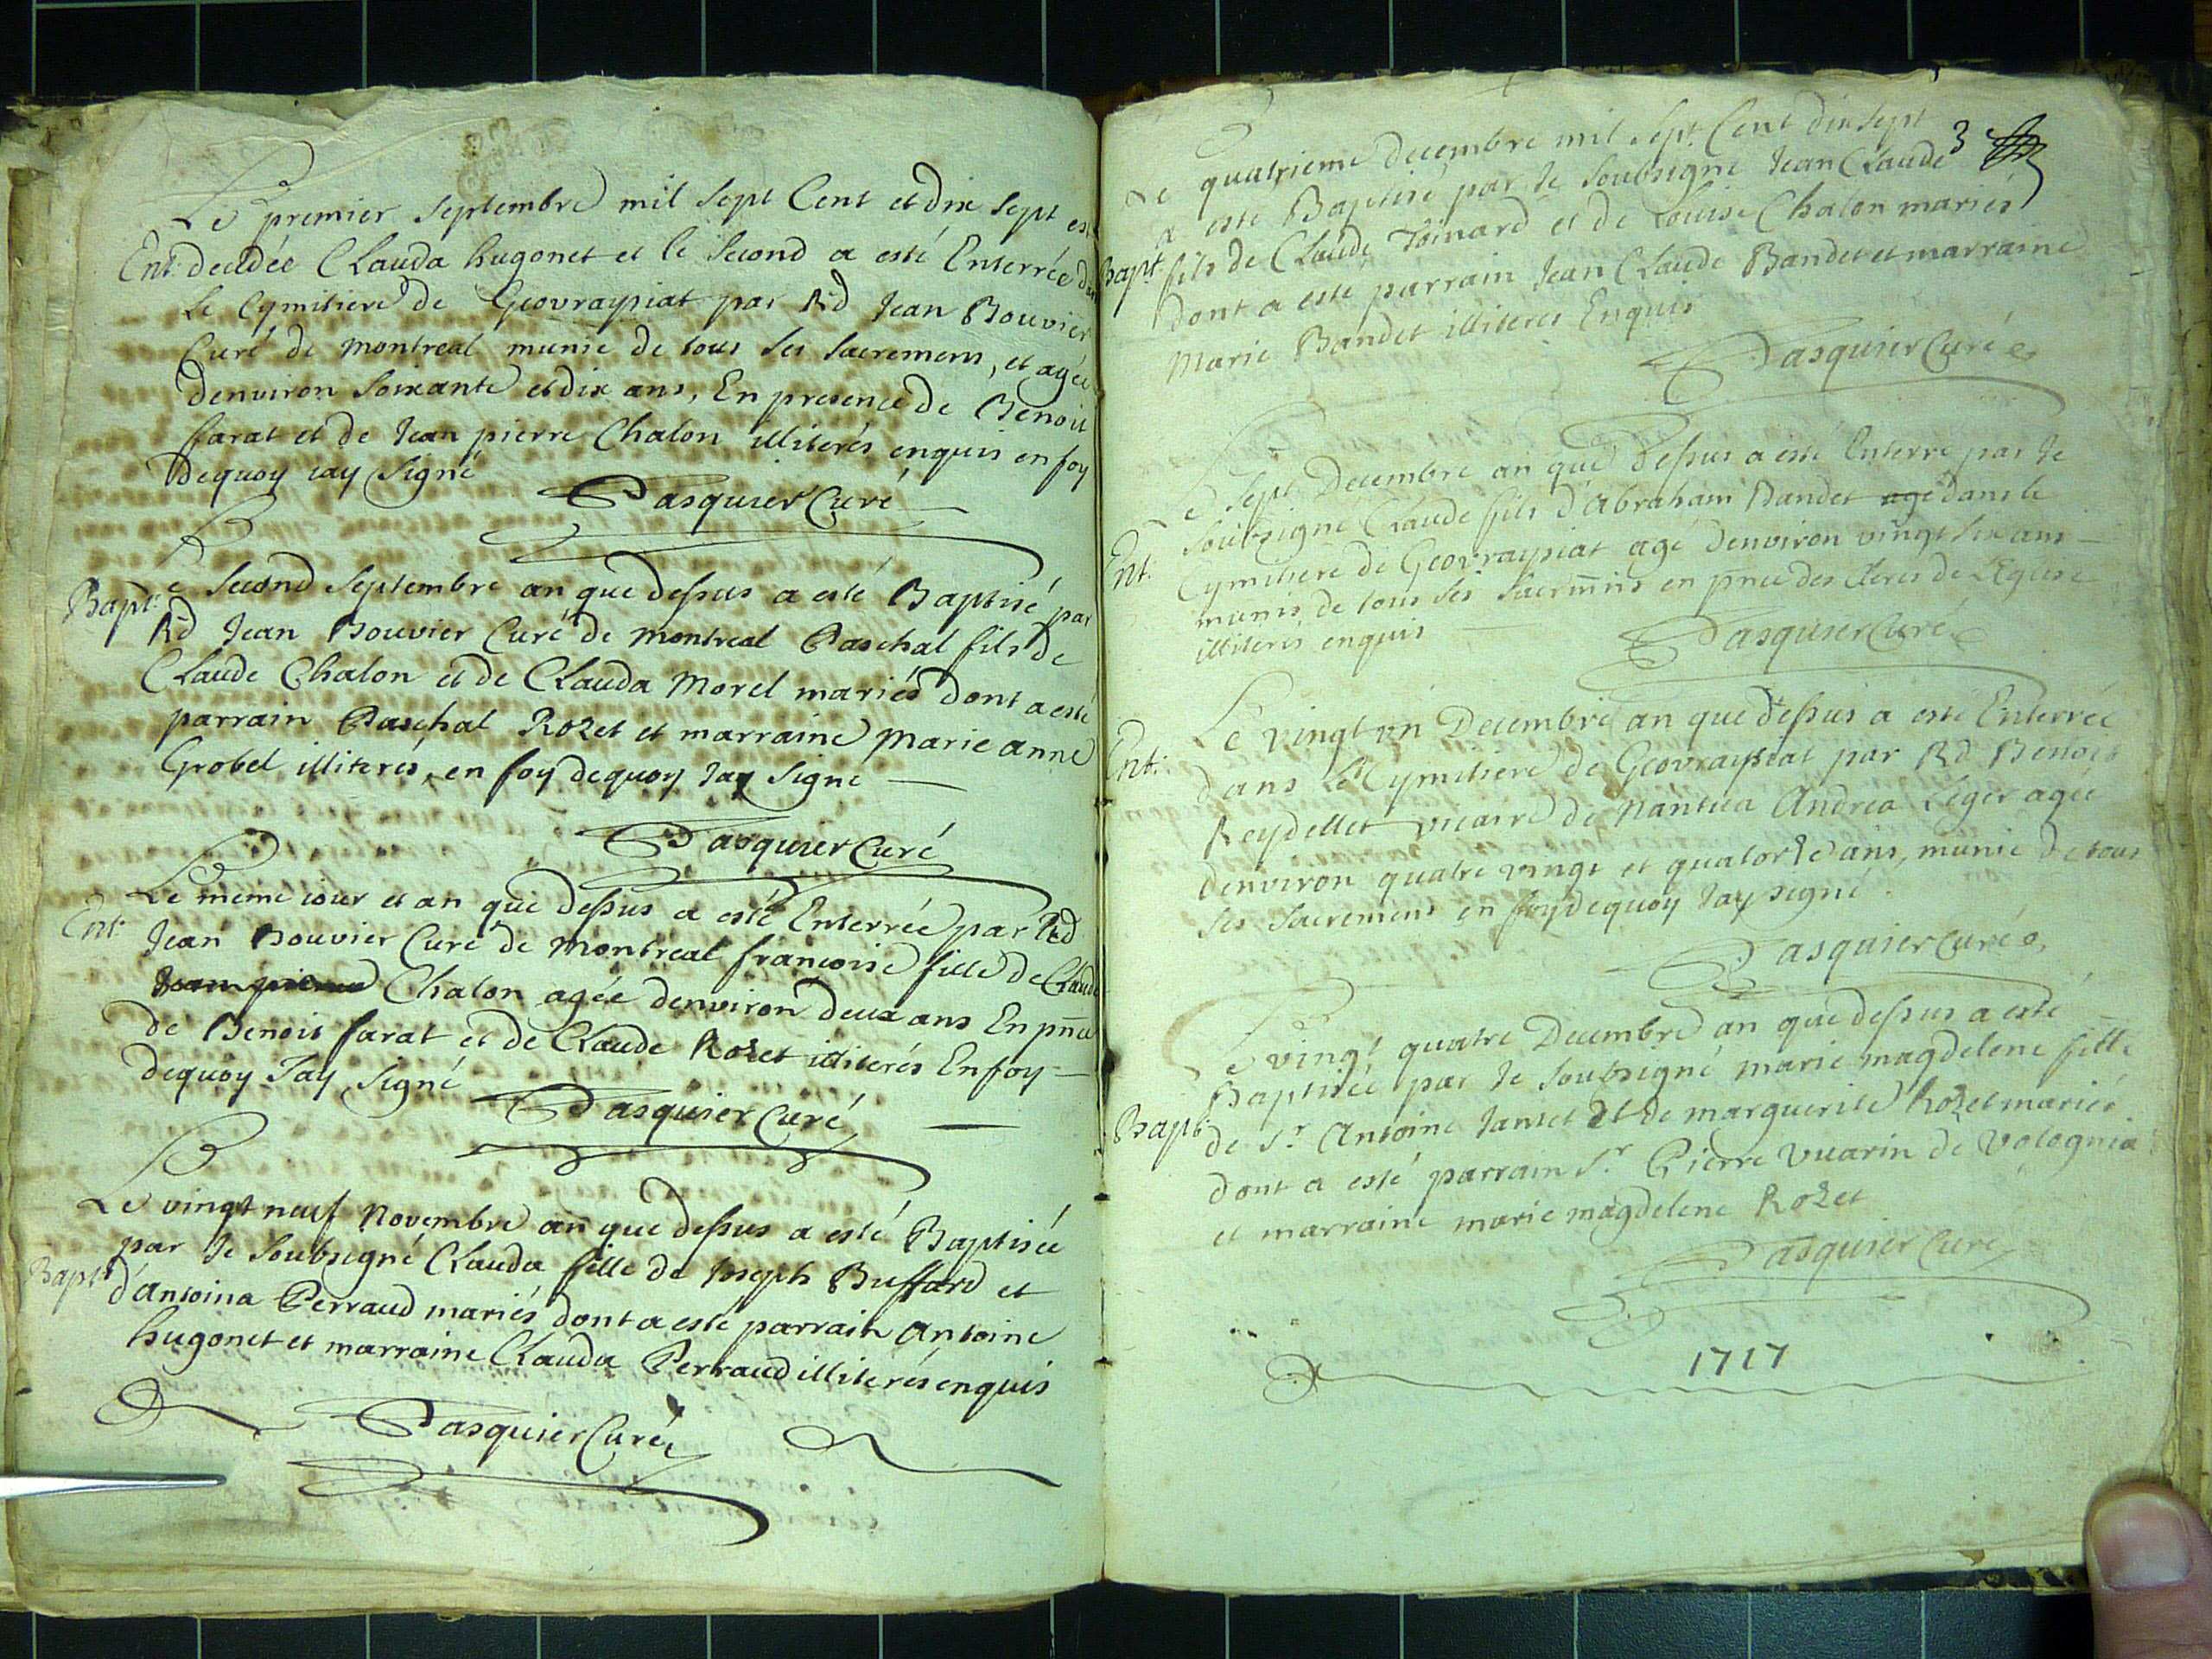 Le premier Septembre mil Sept Cent et dix Sept est
Ent. decedée Clauda hugonet et le Second a esté Enterrée dans
Le Cymitiere de Geovraysiat par Rd Jean Bouvier
Curé de montreal munie de tous Ses Sacremens, et agée
denviron Soixante et dix ans, En presence de Benoit
farat et de Jean pierre Chalon illiterés enquis en foy
Dequoy iay Signé
Pasquier Curé
Bapt. Le Second Septembre an que dessus a esté Baptisé par
Rd Jean Bouvier Curé de montreal Paschal fils de
Claude Chalon et de Clauda Morel mariés dont a esté
parrain Paschal Rozet et marraine marie anne
Grobel illiterés, en foy dequoy Jay Signé
Pasquier Curé
Le meme iour et an que dessus a esté Enterrée par Rd
Ent. Jean Bouvier Curé de montreal francoise fille de Claude
Jean pierre Chalon agée denviron deux ans En pnce
de Benoit farat et de Claude Rozet illiterés En foy
dequoy Jay Signé
Pasquier Curé
Le vingt neuf Novembre an que dessus a esté Baptisée
par Je Soubsigné Clauda fille de Joseph Buffard et
Bapt. d'Antoina Perraud mariés dont a esté parrain Antoine
hugonet et marraine Clauda Perraud illiterés enquis
Pasquier Curé
3
Le quatrieme decembre mil Sept Cent dix Sept
a esté Baptisé par Je Soubsigné Jean Claude
Bapt. fils de Claude Toinard et de Louise Chalon mariés
dont a esté parrain Jean Claude Bandet et marraine
Marie Bandet illiteres Enquis
Pasquier Curé
Le Sept Decembre an que Dessus a esté Enterré par Je
Soubsigné Claude fils d'Abraham Bandet agé dans le
Ent. Cymitiere de Geovraysiat agé denviron vingt Six ans
munis de tous Ses Sacrmns en pnce des Clercs de L'Eglise
illiterés enquis
Pasquier Curé
Le vingt un Decembre an que dessus a esté Enterrée
Ent. dans Le Cymitiere de Geovraysiat par Rd Benoit
Reydellet vicaire de Nantua Andrea Leger agée
denviron quatre vingt et quatorze ans, munie de tous
Ses Sacremens en foy dequoy Jay signé.
Pasquier Curé
Le vingt quatre Decembre an que dessus a esté
Baptisée par Je Soubsigné marie magdelene fille
Bapt. de Sr Antoine Jantet et de marguerite Rozet mariés
dont a esté parrain Sr Pierre Vuarin de Volognia
et marraine marie magdelene Rozet
Pasquier Curé
1717